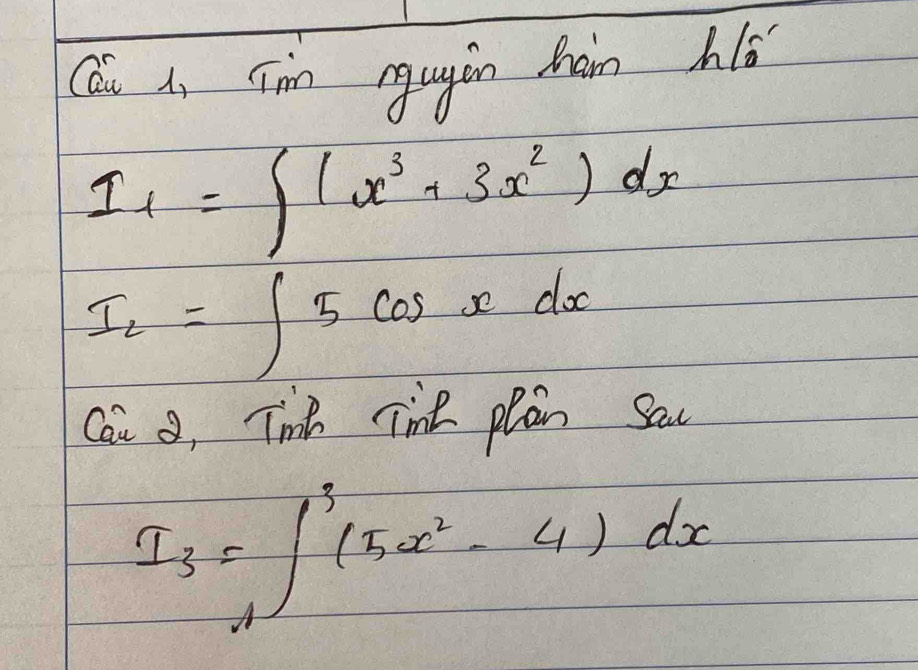 Câu 1, Tìm nguyên hàm h/số
I₁ = ∫ (x³ + 3x²) dx
I₂ = ∫ 5 cos x dx
Câu 2, Tính Tính phân sau
I₃ = ∫₁³ (5x² - 4) dx